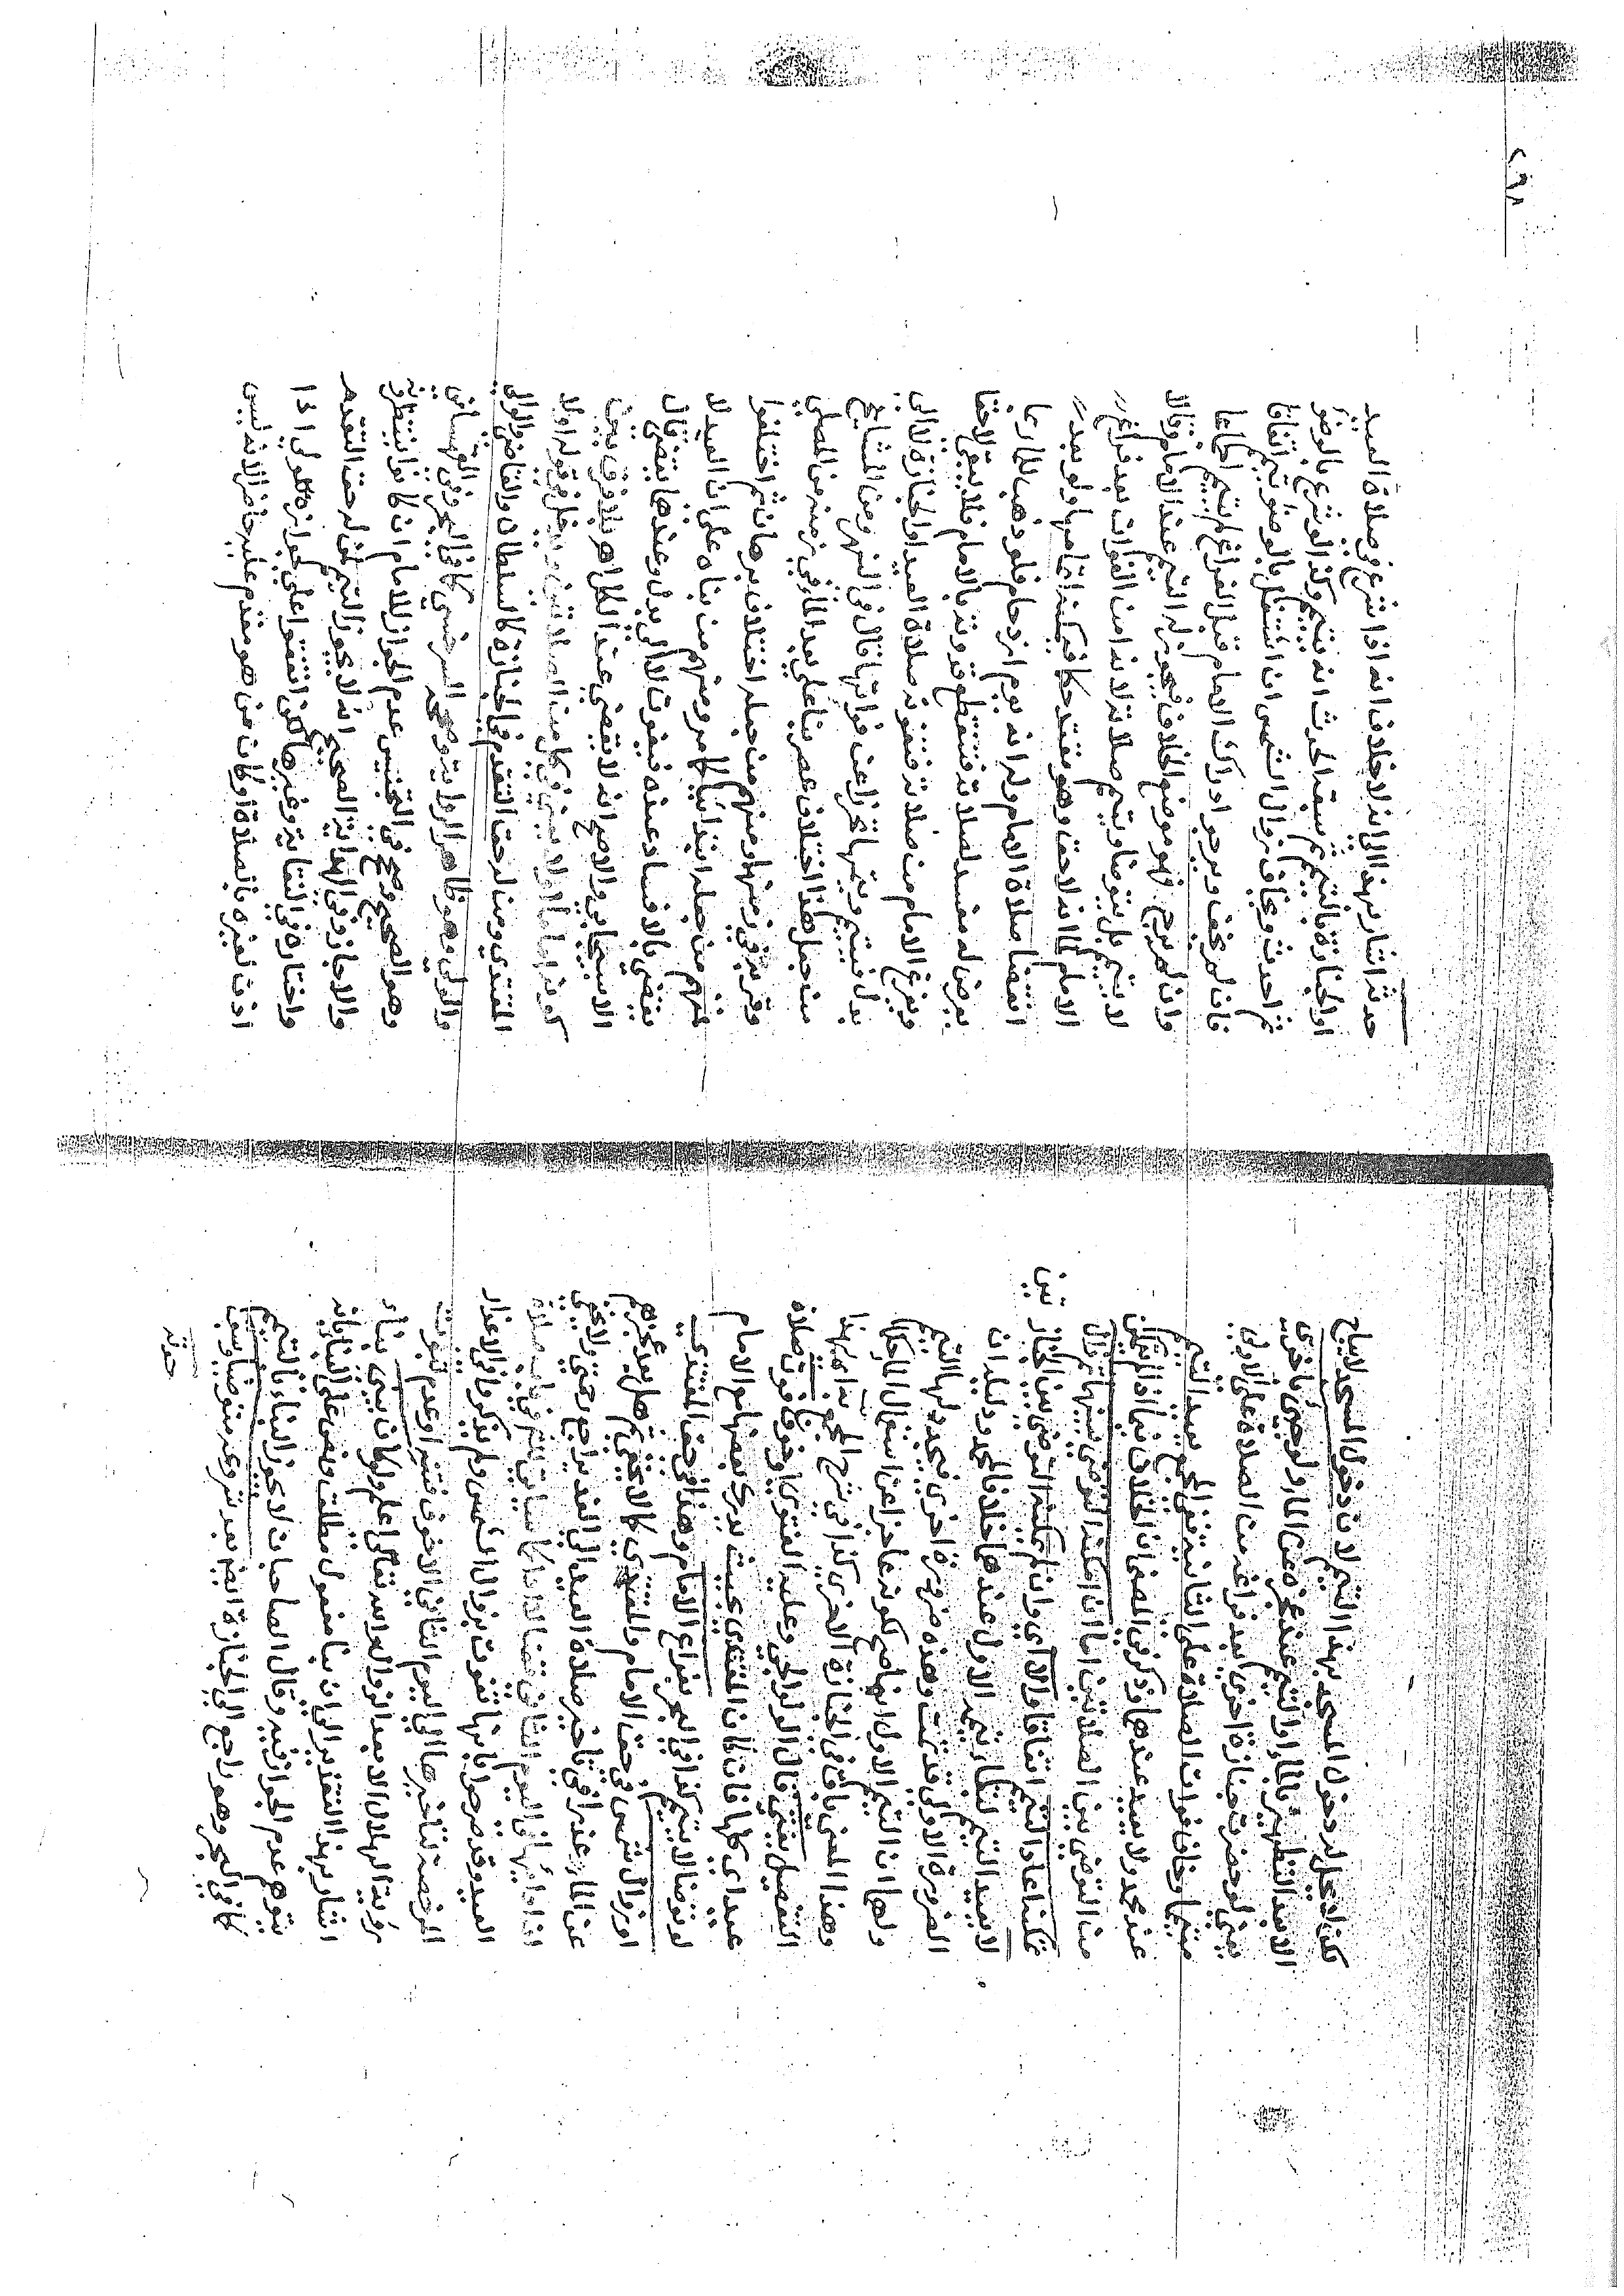 لكن لا يحل له دخول المسجد بهذا التيمم لان دخول المسجد لا يباح
الا بعد التطهير بالماء او التيمم عند عجزه عن الماء ولو جيئ باخرى
يعني لو حضرت جنازة اخرى بعد فراغه من الصلاة على الاولى
متيمما وخاف فوات الصلاة على الثانية ففي المجمع يعيد التيمم
عند محمد ولا يعيد عندهما وذكر في المصفى ان الخلاف فيما اذا لم يتمكن
من التوضي بين الصلاتين اما ان امكنه التوضي بينهما ثم زال
تمكنه اعاد التيمم اتفاقا والا اي وان لم يمكنه التوضي بين الجنازتين
لا يعيد التيمم لبقاء تيممه الاول عندهما خلافا لمحمد ودليله ان
الضرورة الاولى قد تمت وهذه ضرورة اخرى فيجدد لها التيمم
ولهما ان التيمم الاول انما صح لكونه عاجزا عن استعمال الماء حكما
وهذا المعنى باق في الجنازة الاخرى كذا في شرح المجمع
التفصيل يفتى قال الولوالجي وعليه الفتوى او خوف فوت صلاة
عيد اي كلها فان كان المقتدي بحيث يدرك بعضها مع الامام
لو توضا لا يتيمم كذا في البحر بفراغ الامام وهذا في حق المقتدي
او زوال شمس في حق الامام والمقتدي
عن الماء عذرا في تاخير صلاة العيد الى الغد
اذ اداؤها في اليوم الثاني قضاء
العيد وقد صرحوا بانها تفوت بزوال الشمس ولم يذكروا في الاعذار
المرخصة لتاخيرها الى اليوم الثاني الا خوف فتنة او عدم ثبوت
رؤية الهلال الا بعد الزوال والله تعالى اعلم ولو كان يبني بناء
اشار بهذا التقدير الى ان بناء مفعول مطلق
يتوهم عدم الجواز فيه وقال الصاحبان لا يجوز البناء بالتيمم
كما في البحر وهو راجع الى الجنازة ايضا بعد شروعه متوضيا وسبق
حدثه
حدثه اشار بهذا الى انه لا خلاف انه اذا شرع في صلاة العيد
او الجنازة بالتيمم ثم سبقه الحدث انه يتيمم وكذا لو شرع بالوضوء
ثم احدث وخاف زوال الشمس ان اشتغل بالوضوء تيمم اتفاقا
فان لم يخف ويرجو ادراك الامام قبل الفراغ لم يتيمم اجماعا
وان لم يرج فهو موضع الخلاف فيجوز له التيمم عند الامام وقالا
لا يتيمم بل يتوضا ويتم صلاته لانه امن الفوات بعد فراغه
الامام لما انه لاحق وهو مقتد حكما فيمكنه اتمامها ولو بعده
انقضاء صلاة الامام وله انه يوم ازدحام فلو ذهب للماء ربما
يعرض له مفسد لصلاته فتنقطع قدوته بالامام فلا يبقى لاحقا
ويفرغ الامام من صلاته فتفوته صلاة العيد او الجنازة لا الى
بدل فيتيمم ويتمها تحرزا عن فواتها قال في النهر ومن المشايخ
من جعل هذا اختلاف عصر بناء على بعد الماء في زمنه من المصلى
وقربه في زمنهما ومنهم من جعله اختلاف برهان ثم اختلفوا
فمنهم من جعله ابتدائيا كما مر ومنهم من بناه على ان العيد لا
يقضي بالافساد عنده فيفوت لا الى بدل وعندهما يقضي قال
الاسبيجابي والاصح انه لا يقضي عند الكل اهـ بلا فرق بين
كونه اماما او لا يعني في كل من الصلاتين
المقتدي ومن له حق التقدم في الجنازة كالسلطان والقاضي والوالي
والولي وهو ظاهر الرواية وصححه السرخسي كما في البحر وفي القهستاني
وهو الصحيح وصحح في التجنيس عدم الجواز للامام ان كانوا ينتظرونه
والا جاز وفي الهداية الصحيح انه لا يجوز التيمم لمن له حق التقدم
واختاره في النقاية وغيرها لكن اتفقوا على جوازه للولي اذا
اذن لغيره بالصلاة او كان من هو مقدم عليه حاضرا لانه ليس